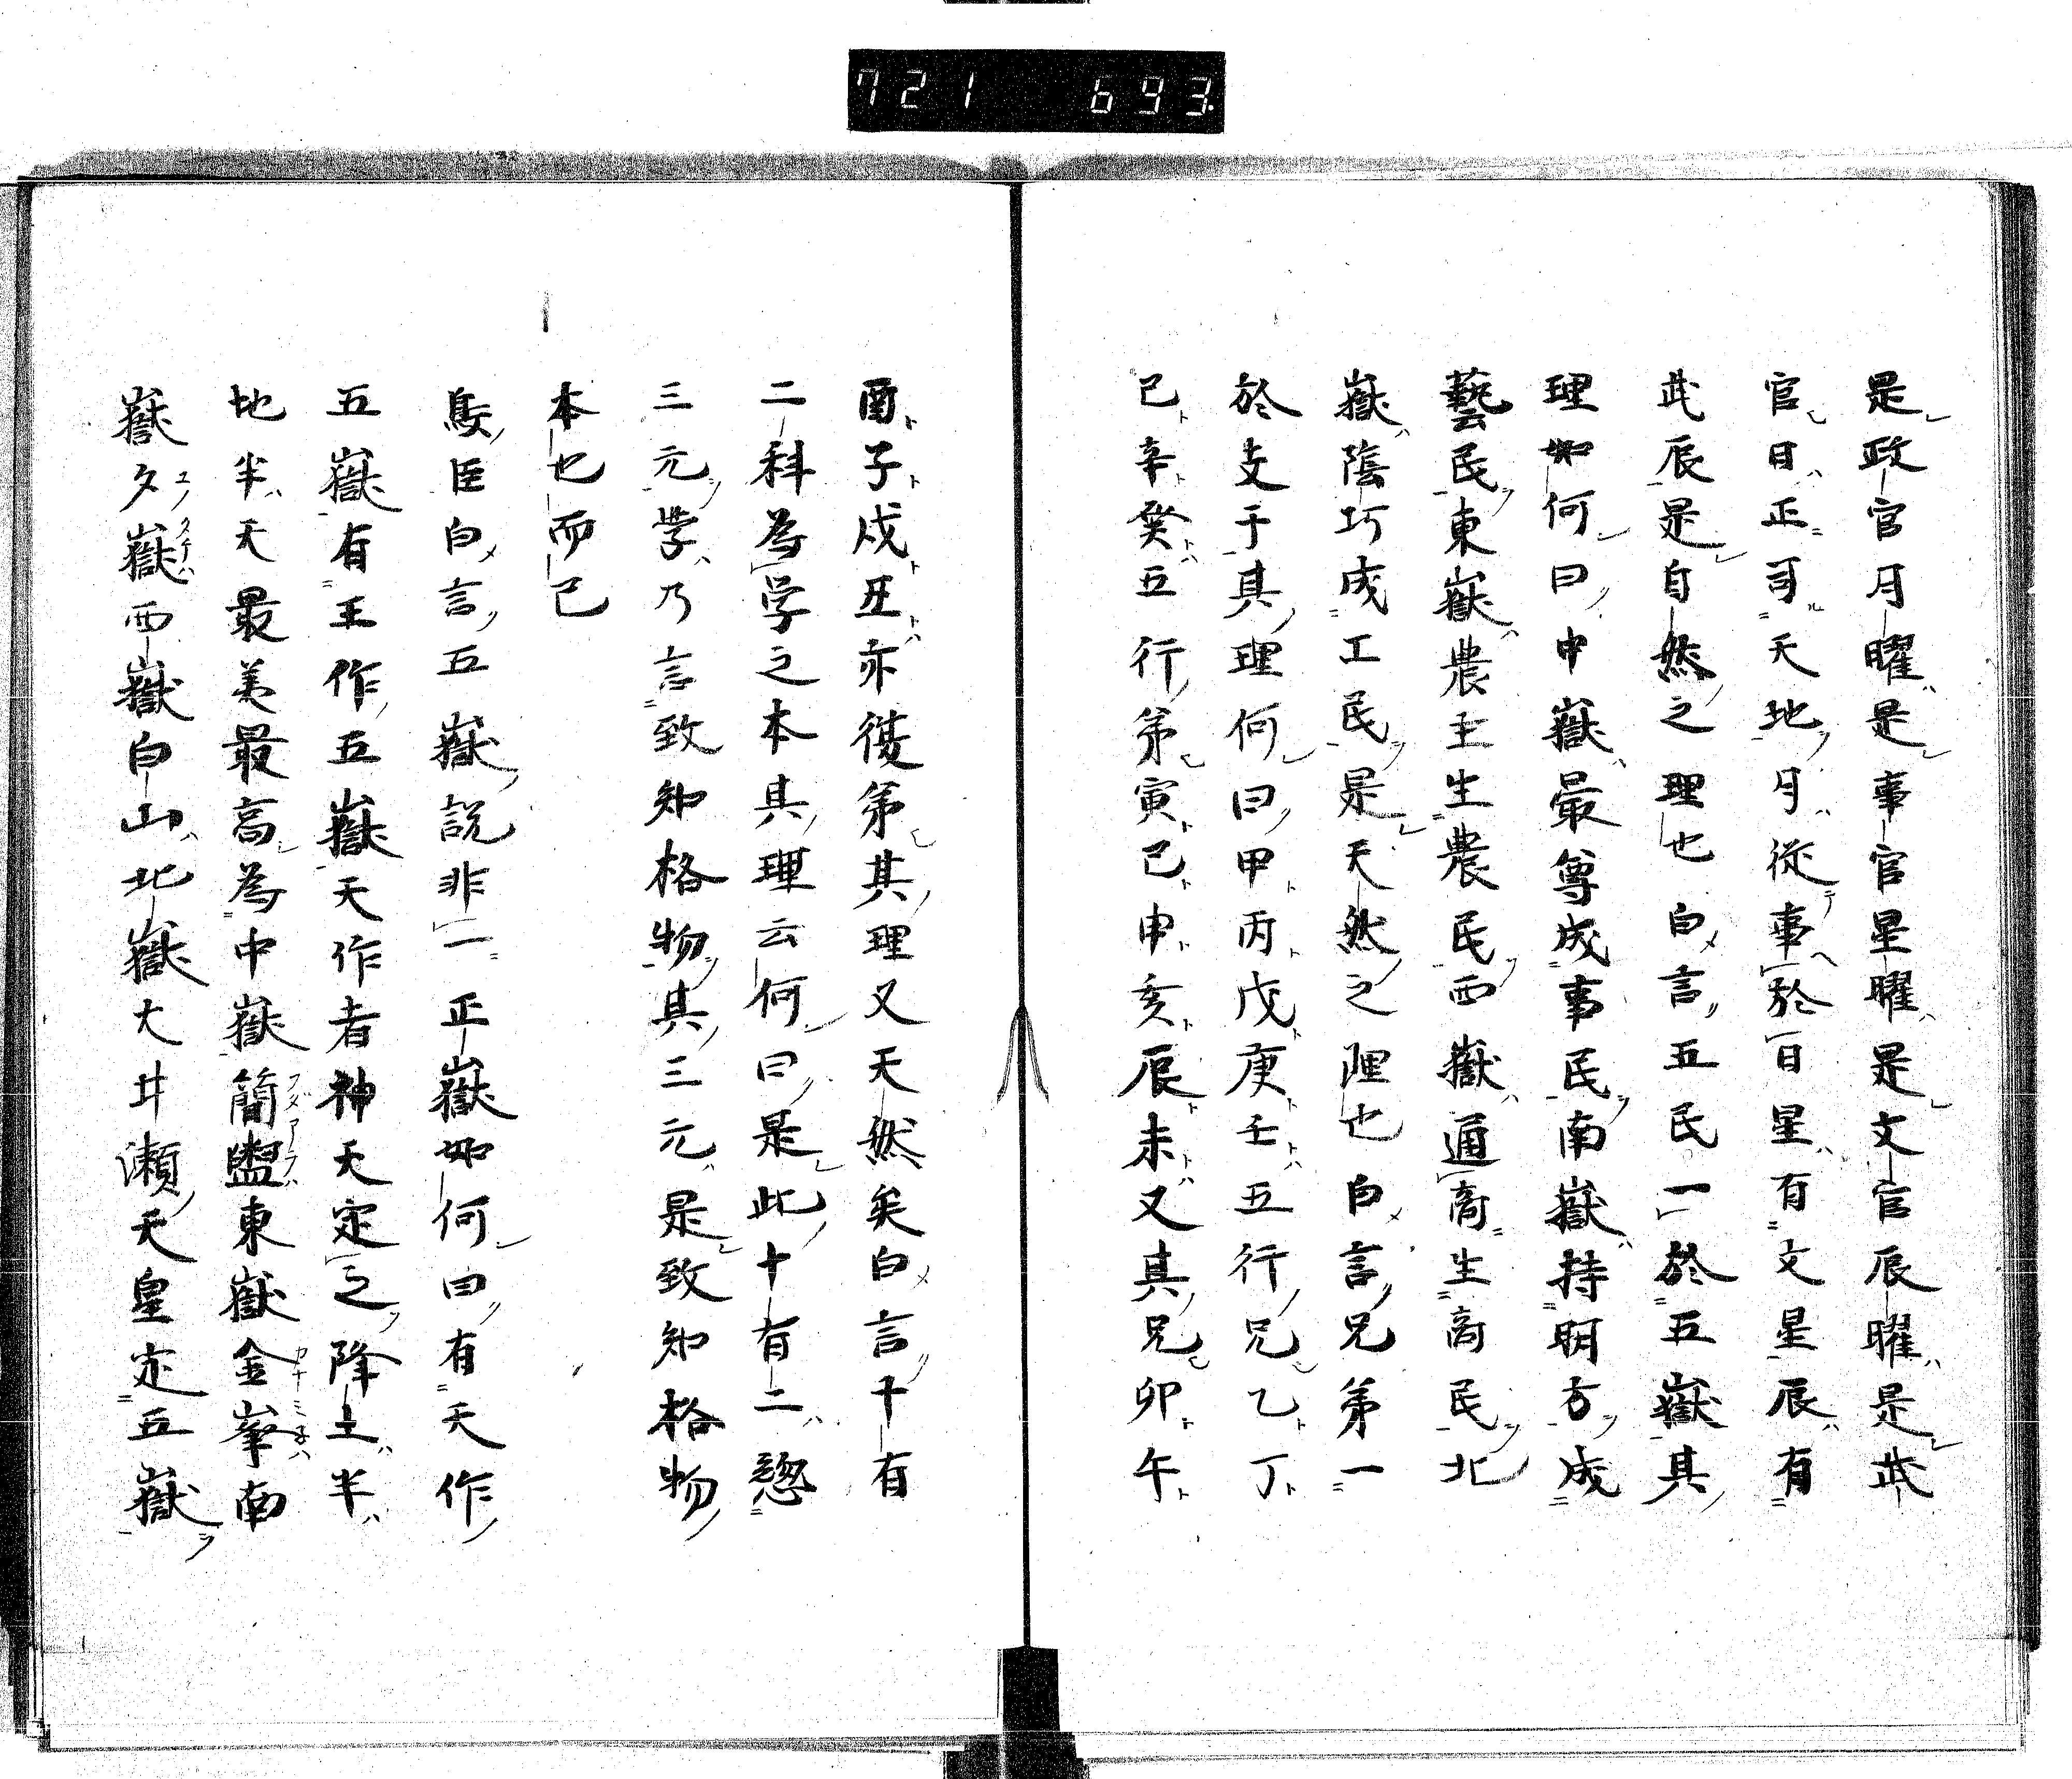 721 693.
是政官月曜是事官星曜是文官辰曜是武
官日正司天地月從事於日星有文星辰有
武辰是自然之理也白言五民一於五嶽其
理如何曰中嶽最尊成事民南嶽持明方成
藝民東嶽農主生農民西嶽通商生商民北
嶽陰巧成工民是天然之理也白言兄弟一
於支干其理何曰甲丙戊庚壬五行兄乙丁
己辛癸五行弟寅己申亥辰未又其兄卯午
酉子戌丑亦復弟其理又天然矣白言十有
二科為学之本其理云何曰是此十有二惣
三元学乃言致知格物其三元是致知格物
本也而已
臣白言五嶽說非一正嶽如何曰有天作
五嶽有王作五嶽天作者神天定之降土半
地半天最美最高為中嶽簡盥東嶽金峯南
嶽夕嶽西嶽白山北嶽大井瀬天皇定五嶽